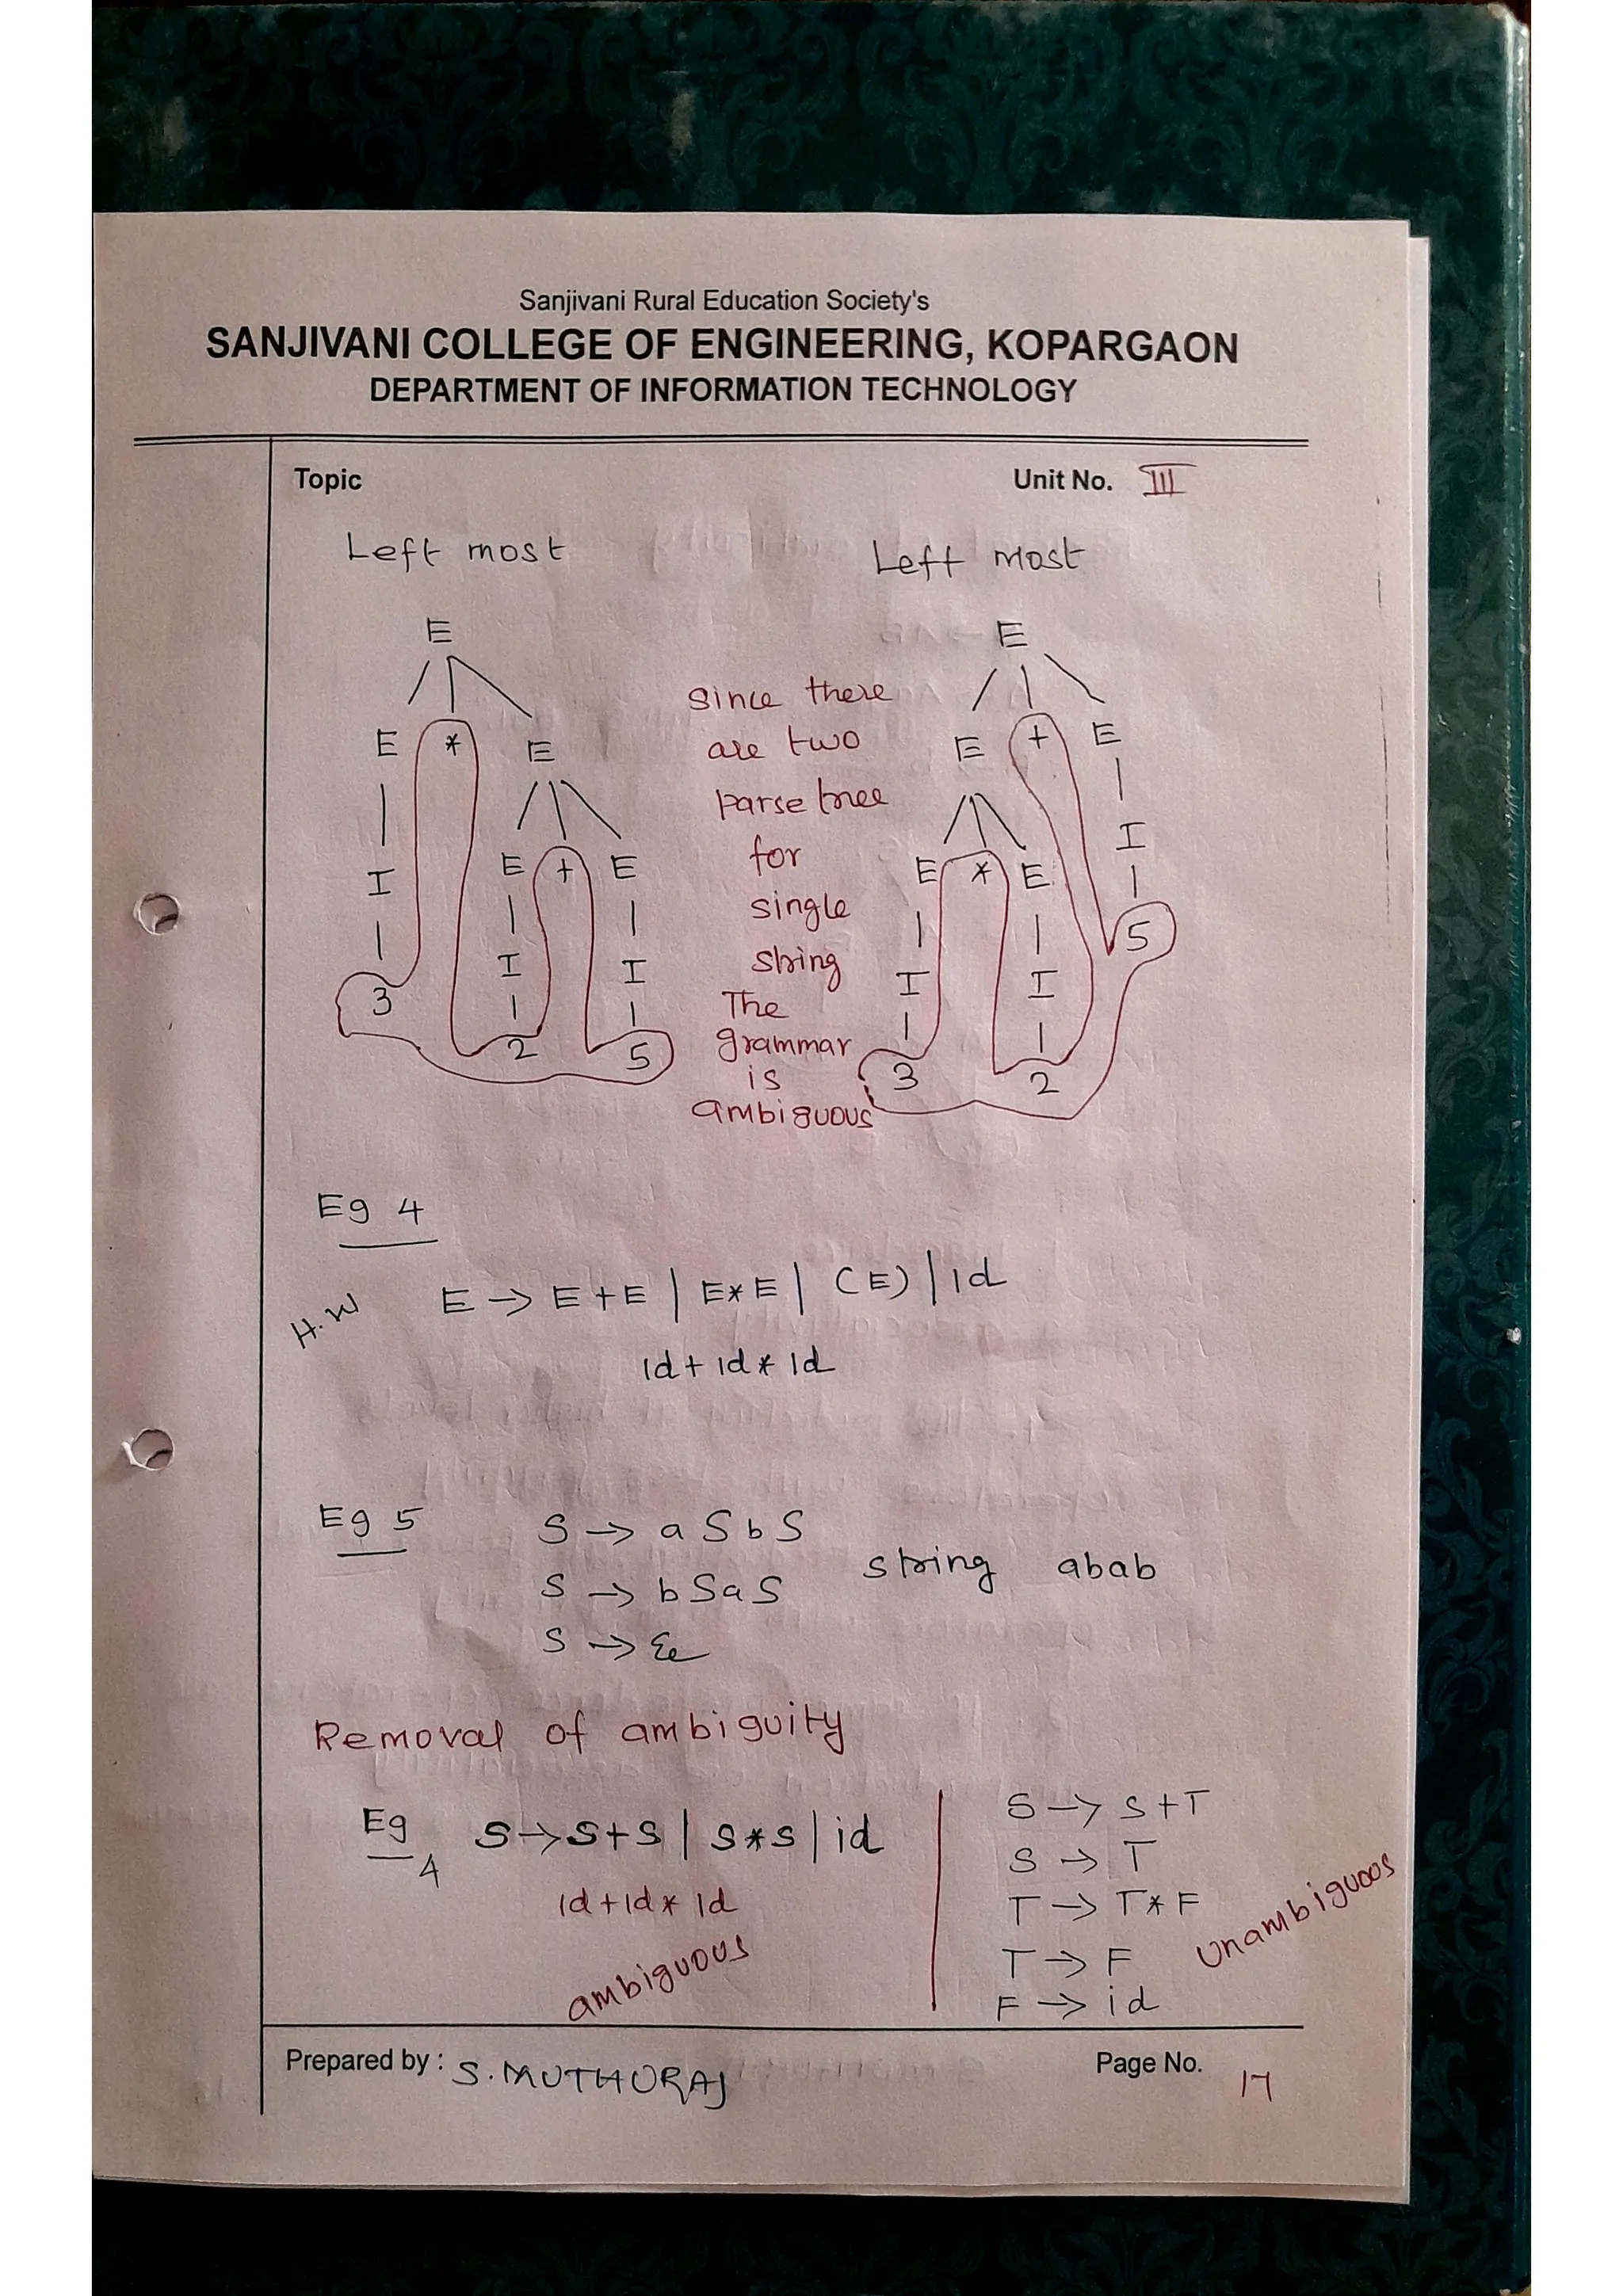 Sanjivani Rural Education Society's
SANJIVANI COLLEGE OF ENGINEERING, KOPARGAON
DEPARTMENT OF INFORMATION TECHNOLOGY
Topic
Unit No. III
Left most
Left Most
E
E * E
I E + E
3 I I
2 5
since there
are two
parse tree
for
single
string
The
grammar
is
ambiguous
E
E + E
E * E I
I I 5
3 2
Eg 4
H.W
E → E + E | E * E | (E) | id
id + id * id
Eg 5
S → a S b S
S → b S a S
S → ε
string abab
Removal of ambiguity
Eg 4
S → S + S | S * S | id
id + id * id
ambiguous
S → S + T
S → T
T → T * F
T → F
F → id
Unambiguous
Prepared by : S. MUTHURAJ
Page No. 17